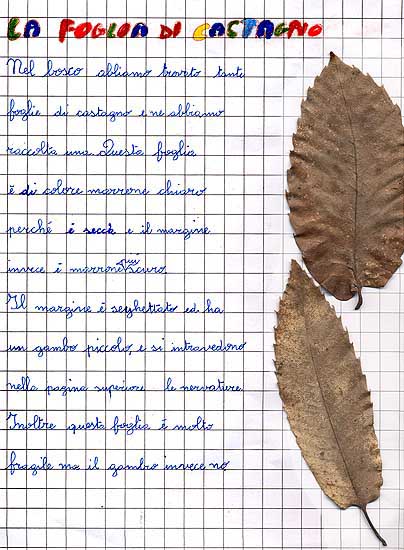 LA FOGLIA DI CASTAGNO
Nel bosco abbiamo trovato tante
foglie di castagno e ne abbiamo
raccolta una. Questa foglia
è di colore marrone chiaro
perché è secca e il margine
invece è marrone più scuro.
Il margine è seghettato ed ha
un gambo piccolo, e si intravedono
nella pagina superiore le nervature.
Inoltre questa foglia è molto
fragile ma il gambo invece no.